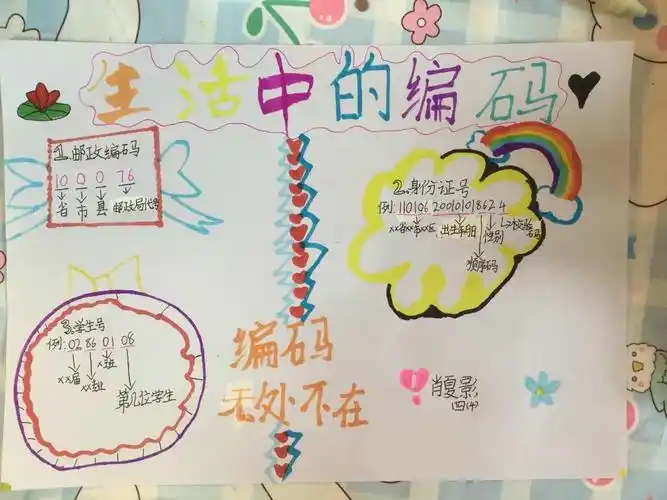 生活中的编码
1.邮政编码
10 0 0 76
省 市 县 邮政局代号
2.身份证号
例:110106 20010101 862 4
xx省xx市xx区 出生年月日 性别 校验码
顺序码
3.学生号
例:02 86 01 08
xx届 xx班 x班
第几位学生
编码
无处不在
肖夏影
四(4)